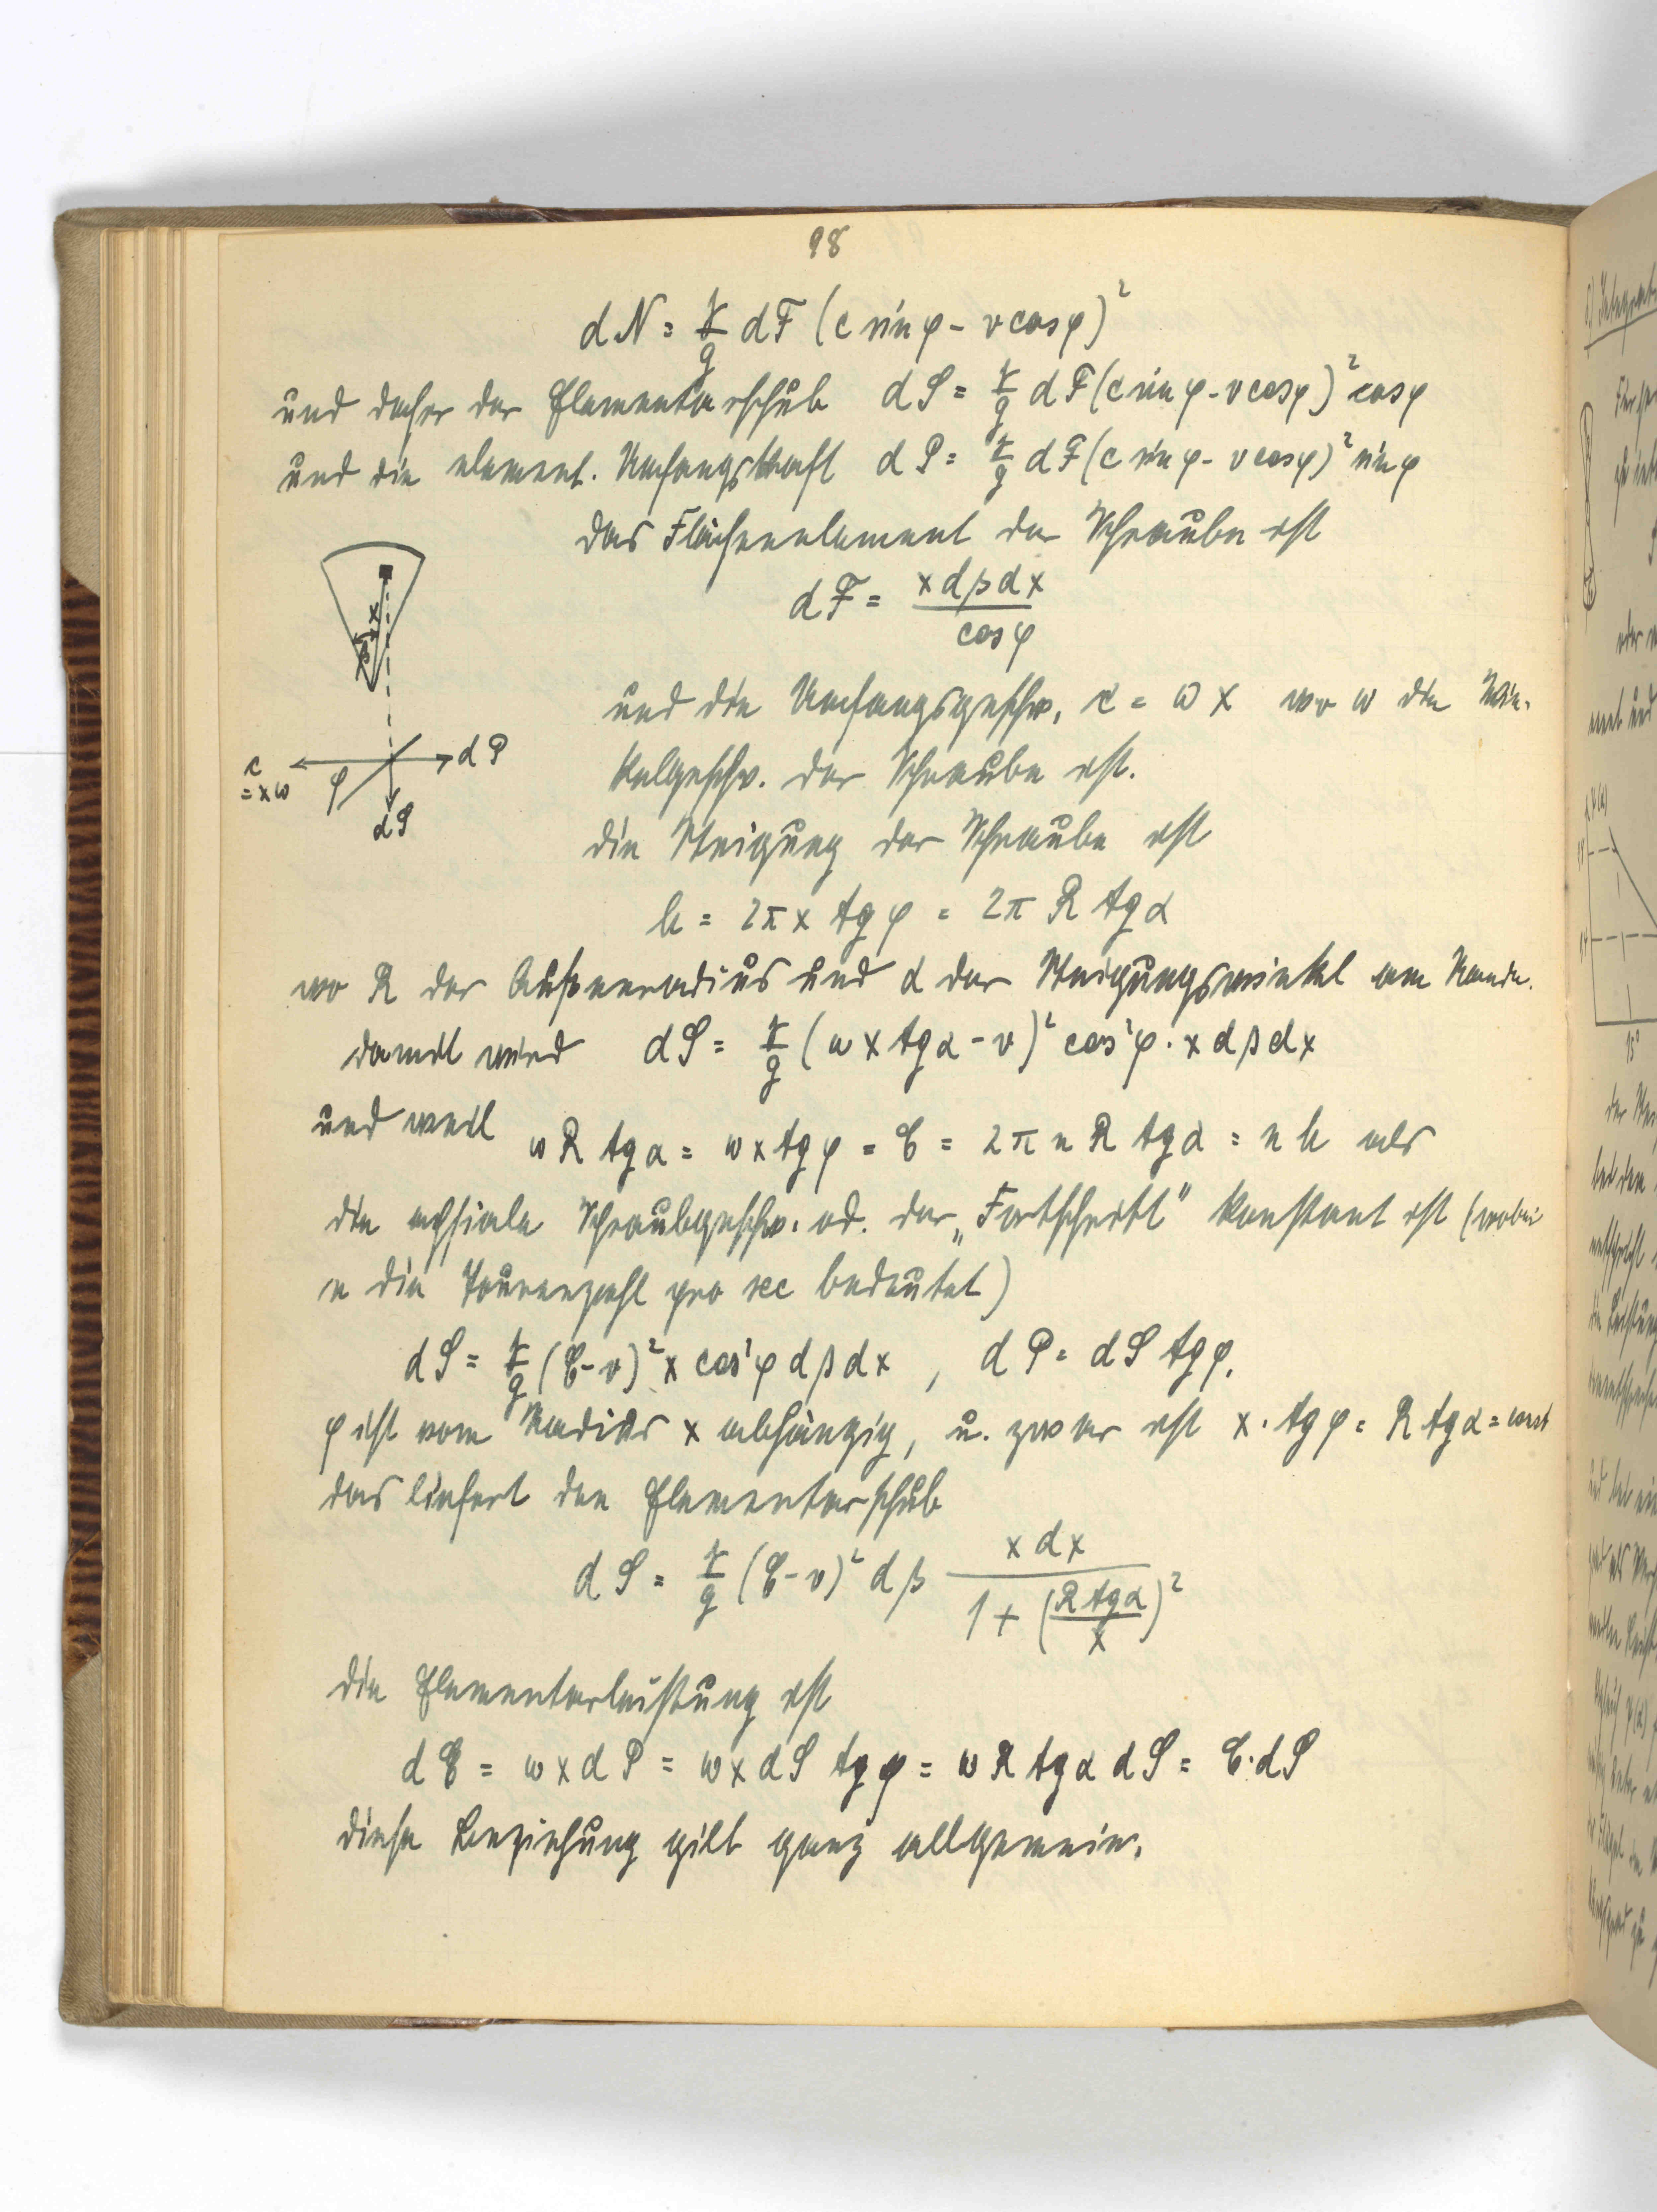 98
dN = γ/g dF (c sin φ - v cos φ)²
und daher der Elementarschub dS = γ/g dF (c sin φ - v cos φ)² cos φ
und die element. Umfangskraft dP = γ/g dF (c sin φ - v cos φ)² sin φ
das Flächenelement der Schraube ist
dF = x dβ dx / cos φ
x
β
und die Umfangsgeschw. c = ω x wo ω die Win-
kelgeschw. der Schraube ist.
c = x ω
φ
dP
dS
die Steigung der Schraube ist
h = 2π x tg φ = 2π R tg α
wo R der Außenradius und α der Steigungswinkel am Rande.
damit wird dS = γ/g (ω x tg α - v)² cos² φ · x dβ dx
und weil ω R tg α = ω x tg φ = C = 2π n R tg α = n h als
die achsiale Schraubgeschw. od. der „Fortschritt" konstant ist (wobei
n die Tourenzahl pro sec bedeutet)
dS = γ/g (C - v)² x cos² φ dβ dx , dP = dS tg φ.
φ ist vom Radius x abhängig, u. zwar ist x · tg φ = R tg α = const
das liefert den Elementarschub
dS = γ/g (C - v)² dβ x dx / 1 + (R tg α / x)²
die Elementarleistung ist
dE = ω x dP = ω x dS tg φ = ω R tg α dS = C · dS
diese Beziehung gilt ganz allgemein.